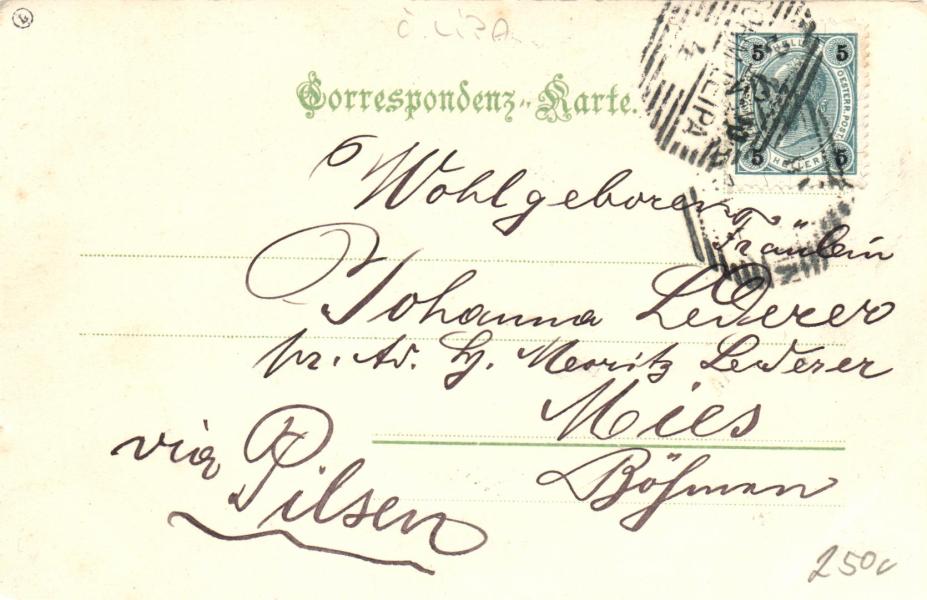 Č. LÍPA
Correspondenz-Karte.
5 HELLER 5
OESTERR. POST.
5 HELLER 5
LEIPA
Wohlgeboren
Fräulein
Johanna Lederer
pr. Ad. H. Moritz Lederer
Mies
via Pilsen
Böhmen
250